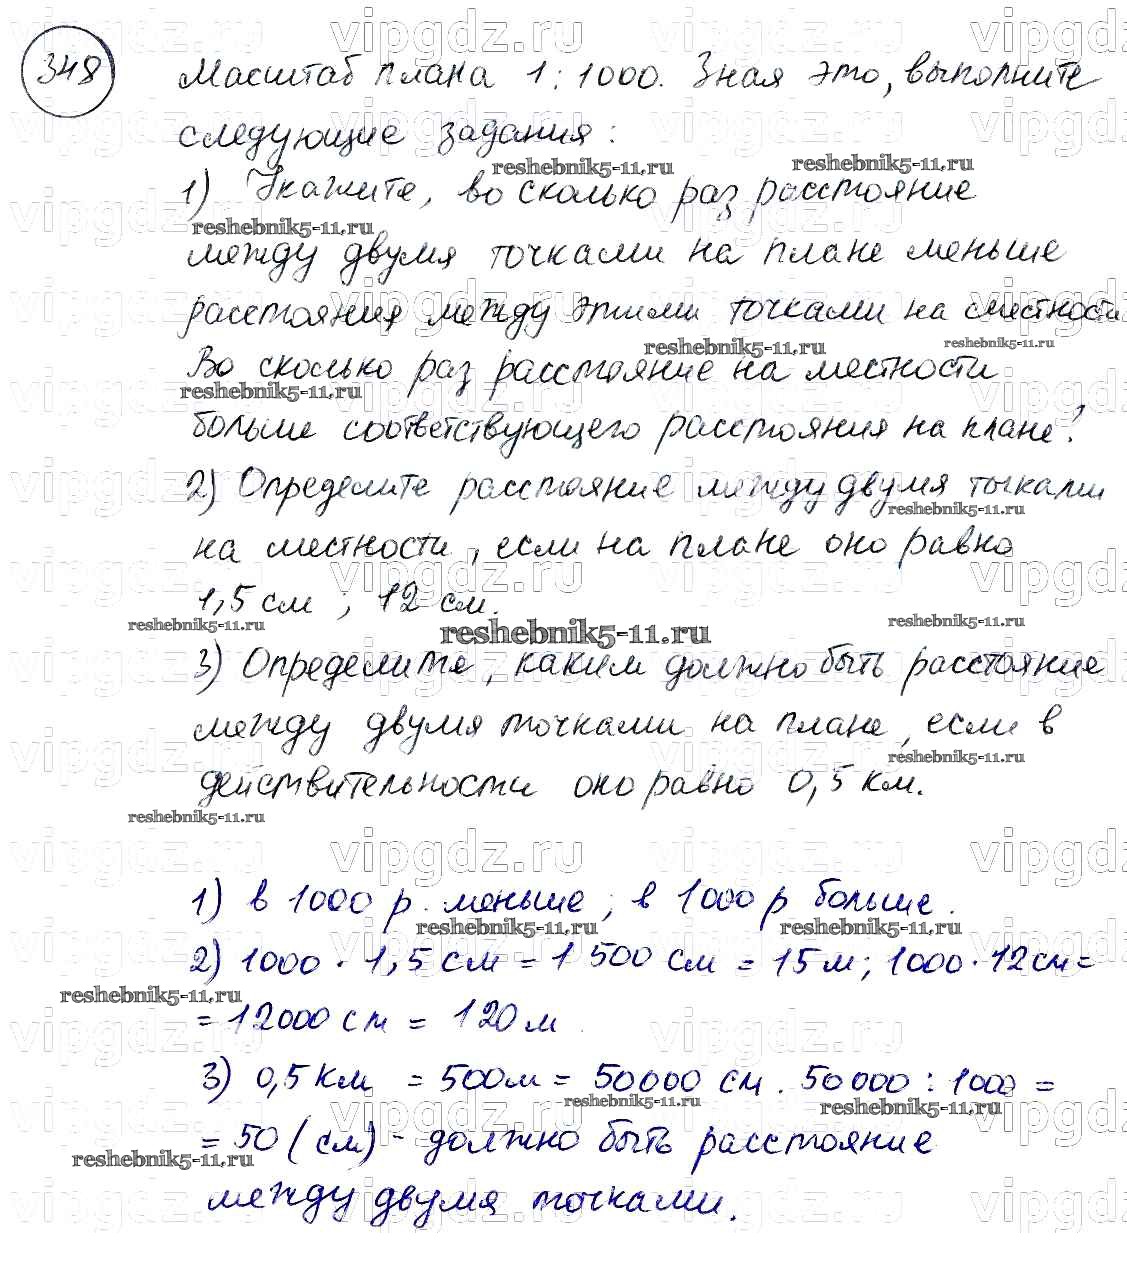 348
Масштаб плана 1:1000. Зная это, выполните
следующие задания:
1) Укажите, во сколько раз расстояние
между двумя точками на плане меньше
расстояния между этими точками на местности
Во сколько раз расстояние на местности
больше соответствующего расстояния на плане?
2) Определите расстояние между двумя точками
на местности, если на плане оно равно
1,5 см ; 12 см.
3) Определите, каким должно быть расстояние
между двумя точками на плане, если в
действительности оно равно 0,5 км.
1) в 1000 р. меньше; в 1000 р больше.
2) 1000 · 1,5 см = 1 500 см = 15 м; 1000 · 12 см =
= 12000 см = 120 м.
3) 0,5 км = 500 м = 50000 см. 50000 : 1000 =
= 50 (см) - должно быть расстояние
между двумя точками.
vipgdz.ru
reshebnik5-11.ru